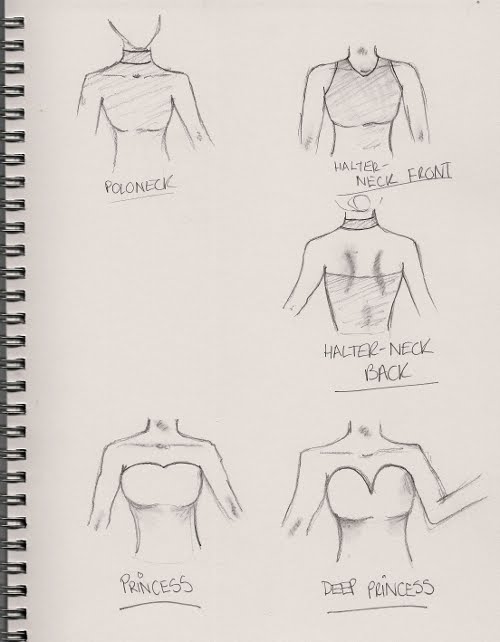 POLONECK
HALTER-
NECK FRONT
HALTER-NECK
BACK
PRINCESS
DEEP PRINCESS